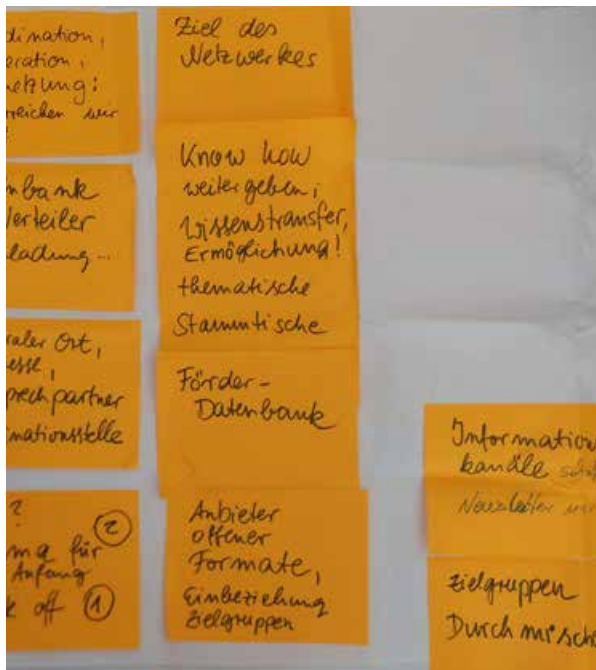 dination,
eration,
netzung:
rreichen wir
?
nbank
Verteiler
ladung...
raler Ort,
esse,
prechpartner
mationsstelle
? ②
ng für
Anfang
k off ①
Ziel des
Netzwerkes
Know how
weitergeben,
Wissenstransfer,
Ermöglichung!
thematische
Stammtische
Förder-
Datenbank
Anbieter
offener
Formate,
Einbeziehung
Zielgruppen
Information
kanäle
Newsletter
Zielgruppen
Durchmisch